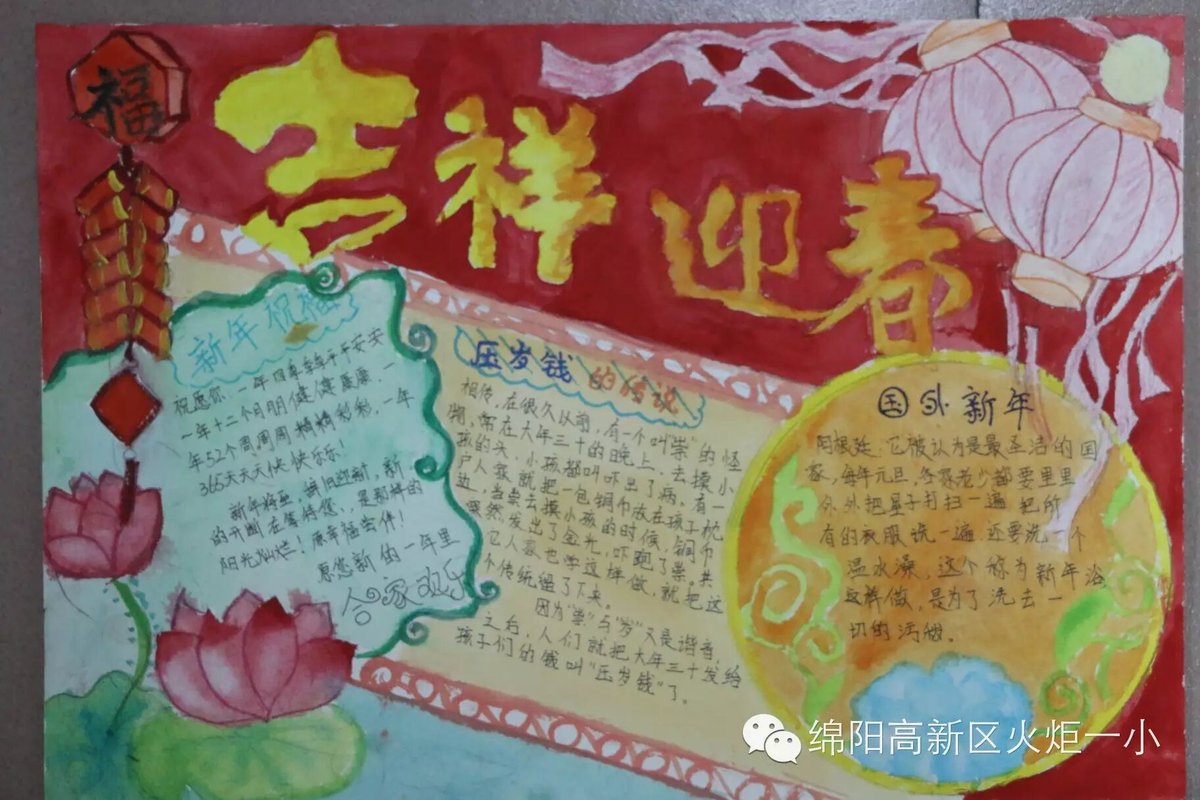 福
吉祥迎春
新年祝福
祝愿你:一年四季季平平安安
一年十二个月明健健康康.一
年52个周周周精精彩彩.一年
365天天天快快乐乐!
新年将至,辞旧迎新,新
的开断在等待您、,是那样的
阳光灿烂!原幸福安伴!
愿您新的一年里
合家欢乐
压岁钱的传说
相传,在很久以前,有一个叫"祟"的怪
物,常在大年三十的晚上,去摸小
孩的头,小孩都叫吓出了病。有一
户人家就把一包铜币放在孩子枕
边,当祟去摸小孩的时候,铜币
突然发出了金光,吓跑了祟。其
它人家也学这样做,就把这
个传统温了下来。
因为"祟"与"岁"又是谐音,
之后,人们就把大年三十发给
孩子们的钱叫"压岁钱"了。
国外新年
阿根廷:它被认为是最圣洁的国
家,每年元旦,各家老少都要里里
外外把屋子打扫一遍 把所
有的衣服洗一遍.还要洗一个
温水澡,这个称为新年浴
这样做,是为了洗去一
切的污烟。
绵阳高新区火炬一小